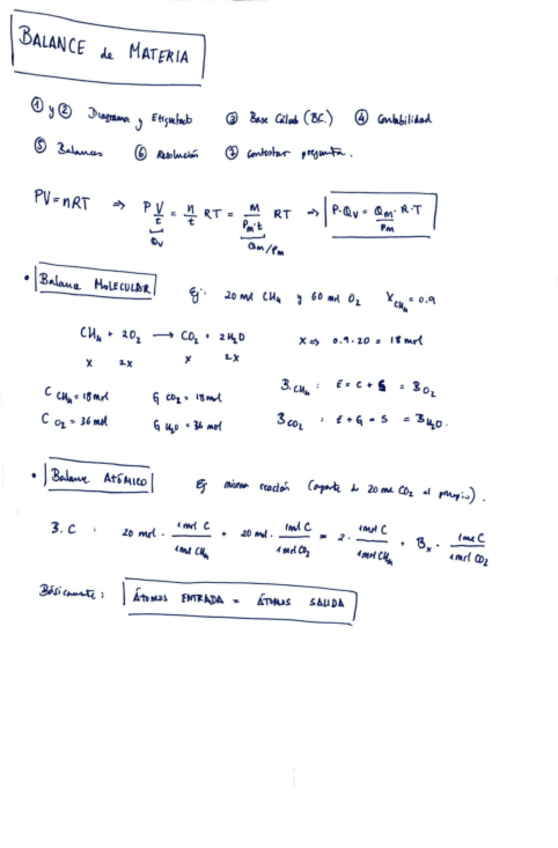 BALANCE de MATERIA
① y ② Diagrama y Etiquetado ③ Base Cálculo (BC.) ④ Contabilidad
⑤ Balances ⑥ Resolución ⑦ Contestar pregunta.
PV = nRT ⇒ P V/t = n/t RT = M/(Pm·t) RT ⇒ P·Qv = Qm/Pm · R·T
Qv Qm/Pm
• Balance MOLECULAR Ej: 20 mol CH4 y 60 mol O2 XCH4 = 0.9
CH4 + 2O2 → CO2 + 2H2O X ⇒ 0.9·20 = 18 mol
x 2x x 2x
C CH4 = 18 mol G CO2 = 18 mol B.CH4 : E = C + S = B O2
C O2 = 36 mol G H2O = 36 mol B CO2 : E + G = S = B H2O.
• Balance ATÓMICO Ej misma reacción (aparte de 20 mol CO2 al principio).
B.C : 20 mol · 1 mol C/1 mol CH4 + 20 mol · 1 mol C/1 mol CO2 = 2 · 1 mol C/1 mol CH4 + Bx · 1 mol C/1 mol CO2
Básicamente: ÁTOMOS ENTRADA = ÁTOMOS SALIDA